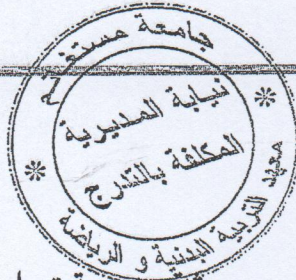 جامعة مستغانم
نيابة المديرية
المكلفة بالتدرج
معهد التربية البدنية و الرياضة